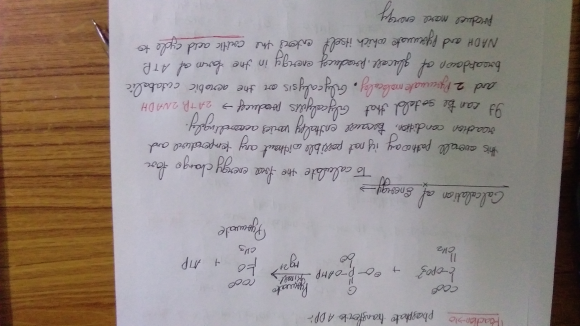 Reaction-10
phosphate transfer to ADP:-
COO⁻
C-OPO3
CH2
+
O
⁻O-P-O-AMP
O⁻
Pyruvate
kinase
Mg2+
COO⁻
C=O
CH3
+ ATP
Pyruvate
Calculation of Energy
To calculate the free energy change for
this overall pathway is not possible without any temperature and
reaction condition. Because enthalpy varies accordingly.
It can be stated that Glycolysis produces → 2ATP, 2NADH
and 2 Pyruvate molecules. Glycolysis is an aerobic catabolic
breakdown of glucose, producing energy in the form of ATP,
NADH and Pyruvate which itself enters the citric acid cycle to
produce more energy